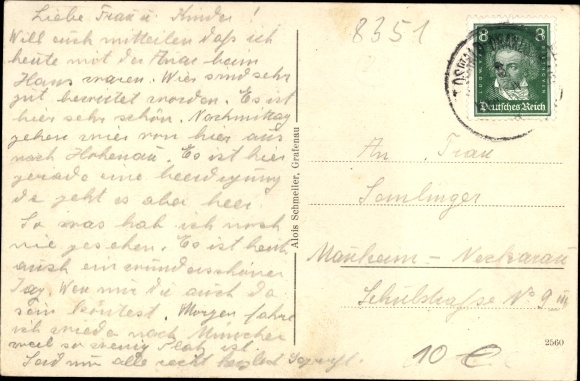 Liebe Frau u. Kinder!
Will euch mitteilen daß ich
heute mit der Anna beim
Hans waren. Wier sind sehr
gut bewirtet worden. Es ist
hier sehr schön. Nachmittag
gehen wier von hier aus
nach Hohenau. Es ist hier
gerade eine beerdigung
da geht es aber her.
So was hab ich noch
nie gesehen. Es ist heute
auch ein wunderschöner
Tag. Wen nur die auch da
sein könntest. Morgen fahre
ich wieder nach München
weil so wenig Platz ist.
Seid nur alle recht herzlich
8351
8 8
Deutsches Reich
An Frau
Somlinger
Manheim - Neckarau
Schulstraße No 9 III
Alois Schmeller, Grafenau
2560
10 €